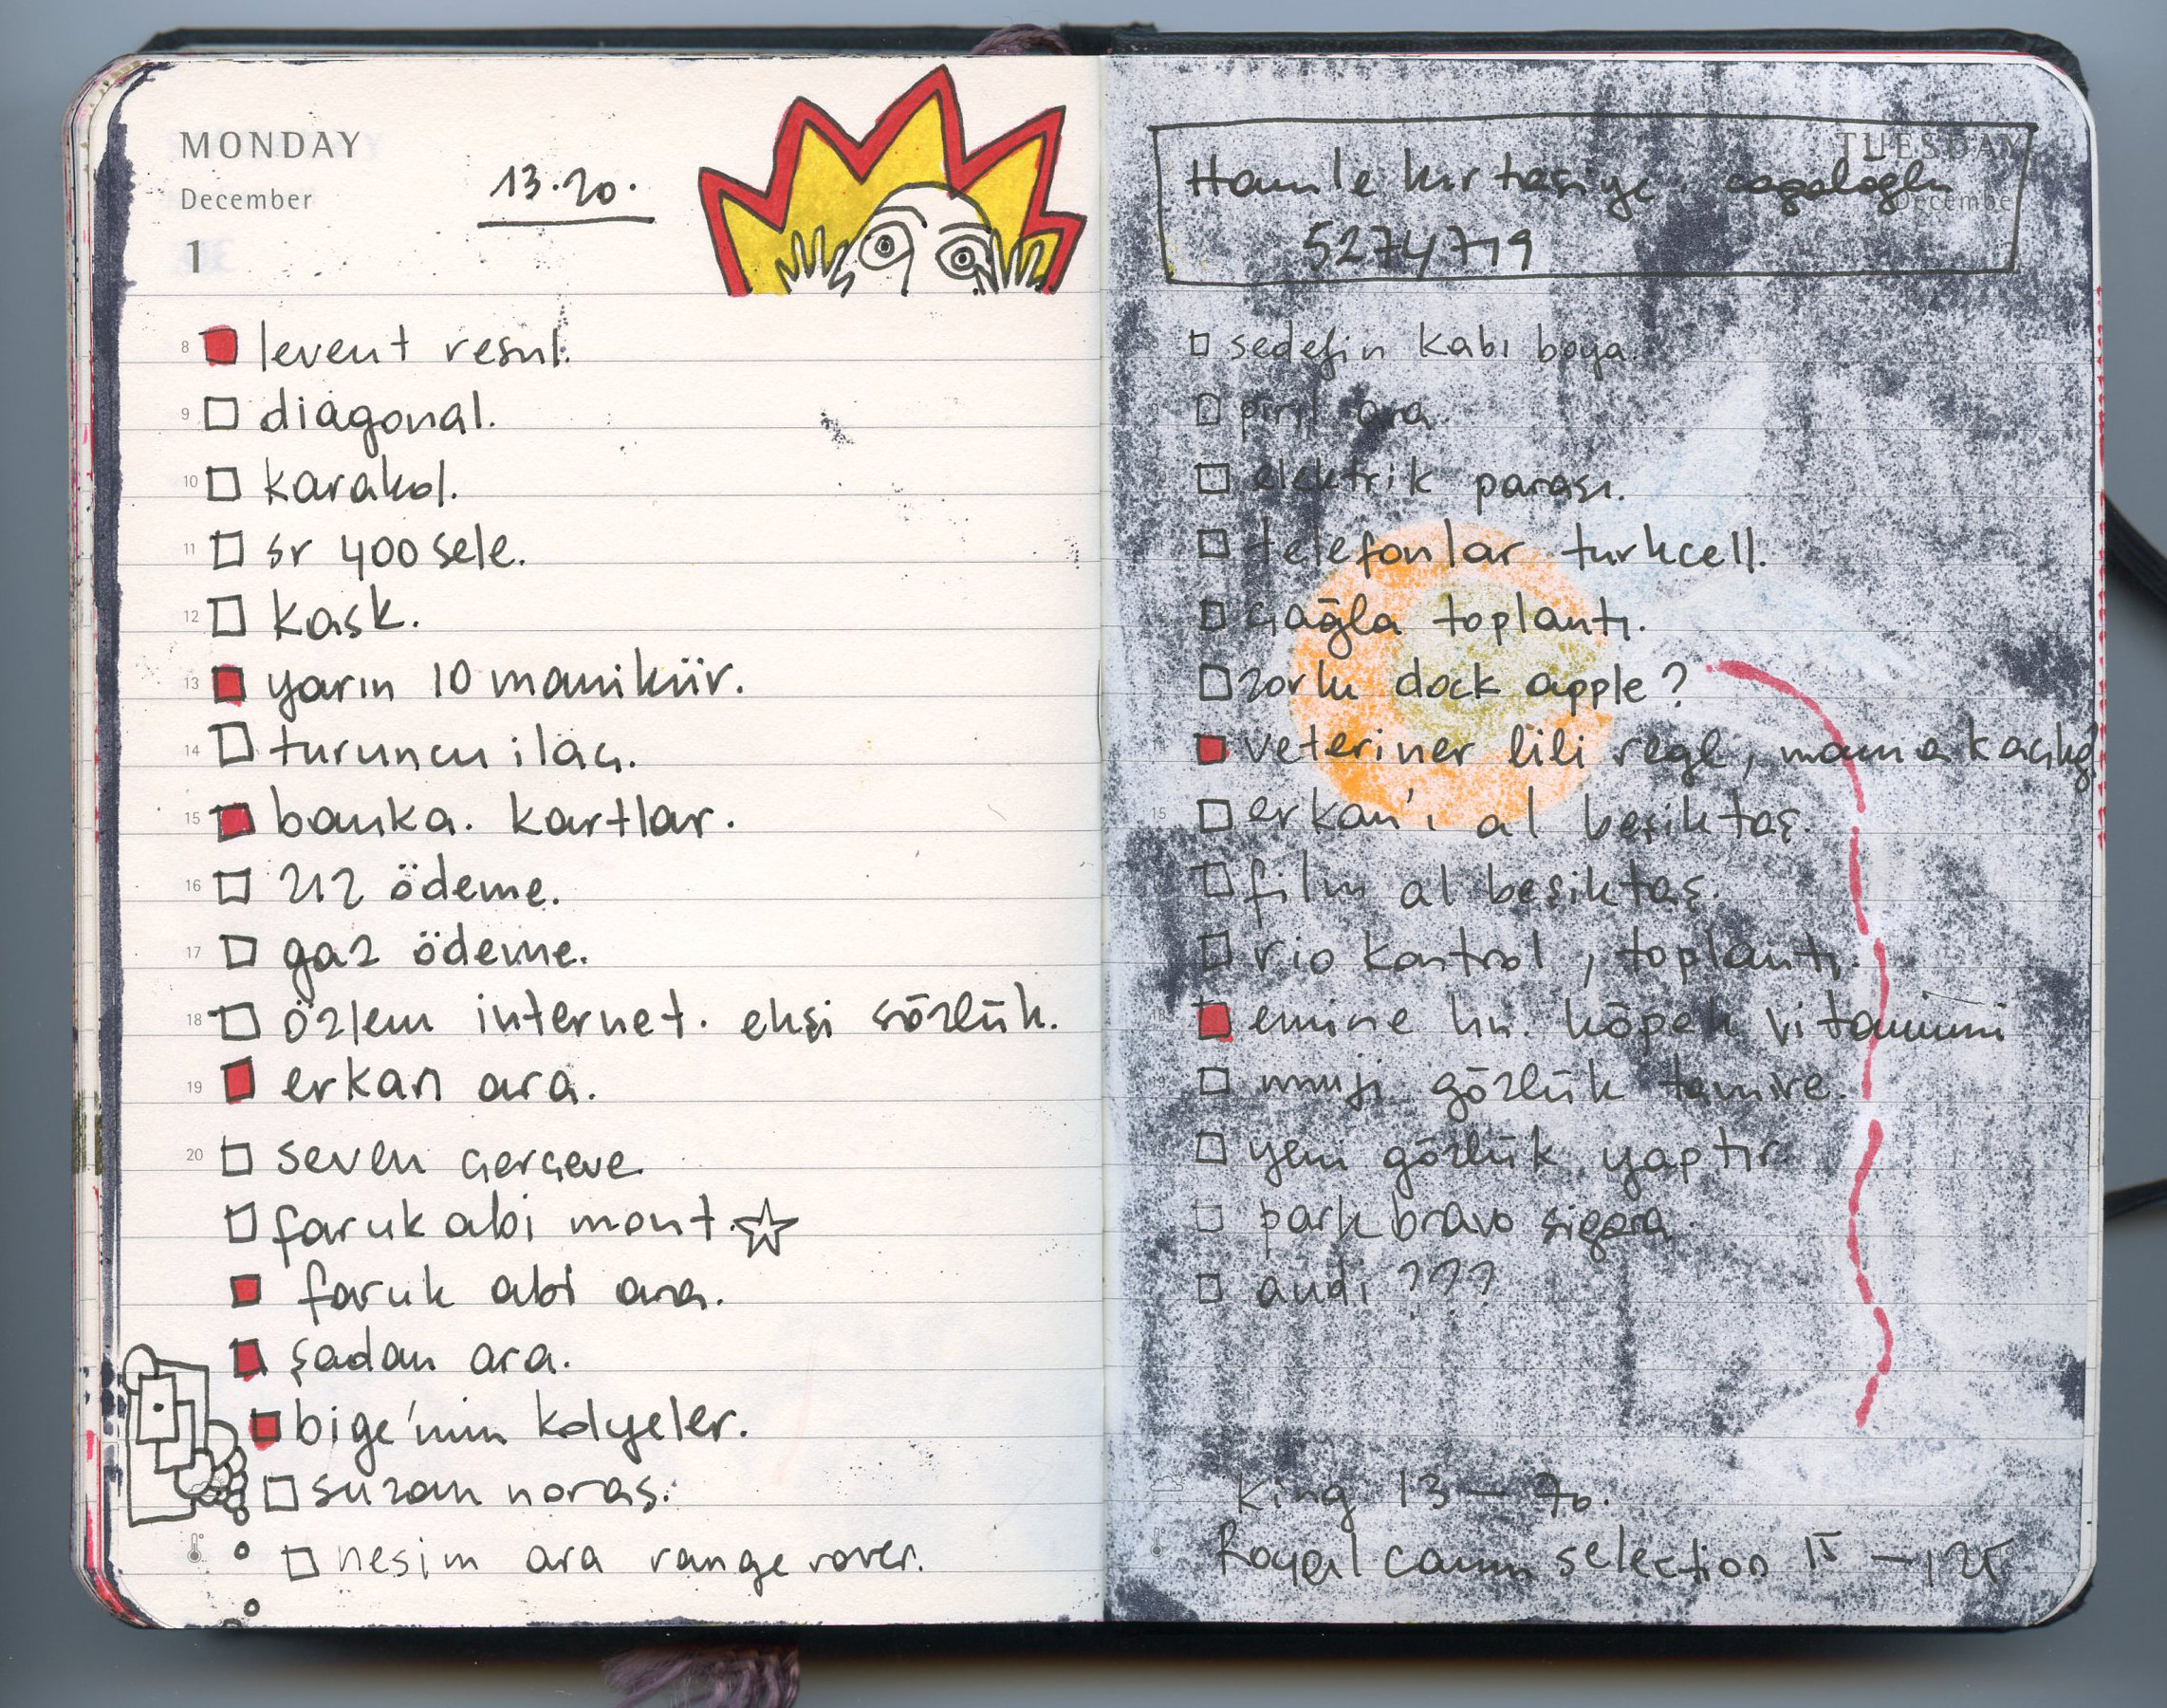 MONDAY
December
1
13.20.
8 levent resul.
9 diagonal.
10 karakol.
11 sr 400 sele.
12 kask.
13 yarın 10 manikür.
14 turuncu ilaç.
15 banka. kartlar.
16 212 ödeme.
17 gaz ödeme.
18 özlem internet. ekşi sözlük.
19 erkan ara.
20 seven çerçeve
faruk abi mont.
faruk abi ara.
şadan ara.
bige'nin kolyeler.
suzan noras.
nesim ara range rover.
TUESDAY
December
Hamle kırtasiye. cagaloglu
5274719
sedefin kabı boya.
pırıl ara.
elektrik parası.
telefonlar turkcell.
çağla toplantı.
zorlu dock apple?
veteriner lili regl, mama
15 erkan'ı al beşiktaş.
film al beşiktaş.
rio kontrol, toplantı.
emine hn. köpek vitamini
muji gözlük tamire.
yeni gözlük yaptır.
park bravo sigara.
audi ???
King 13 — 70.
Royal canin selection 15 —